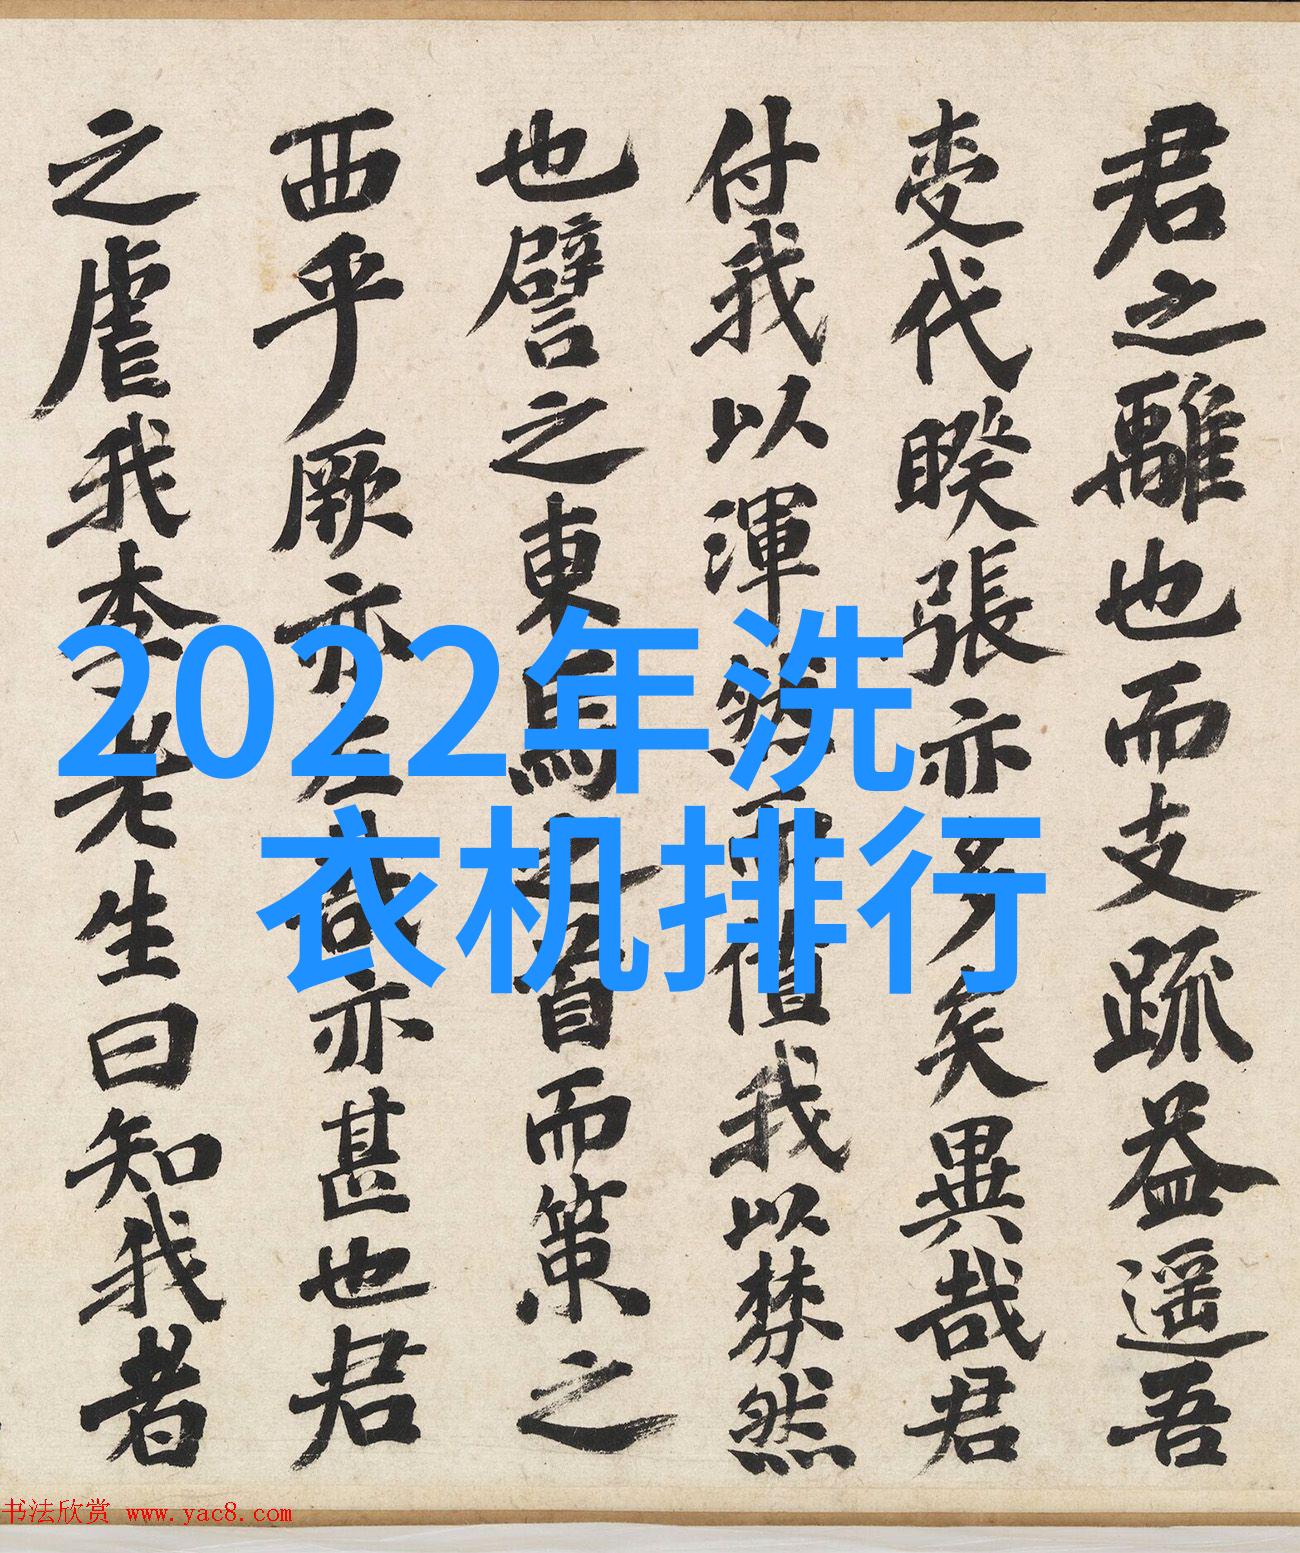 君之離也而支疏益遥吾
变代暌張亦多矣異哉君
付我以渾然而值我以棼然
也譬之東馬之首而策之
西乎厥亦左哉亦甚也君
之虐我李老先生曰知我者
2022年洗
衣机排行
书法欣赏 www.yac8.com